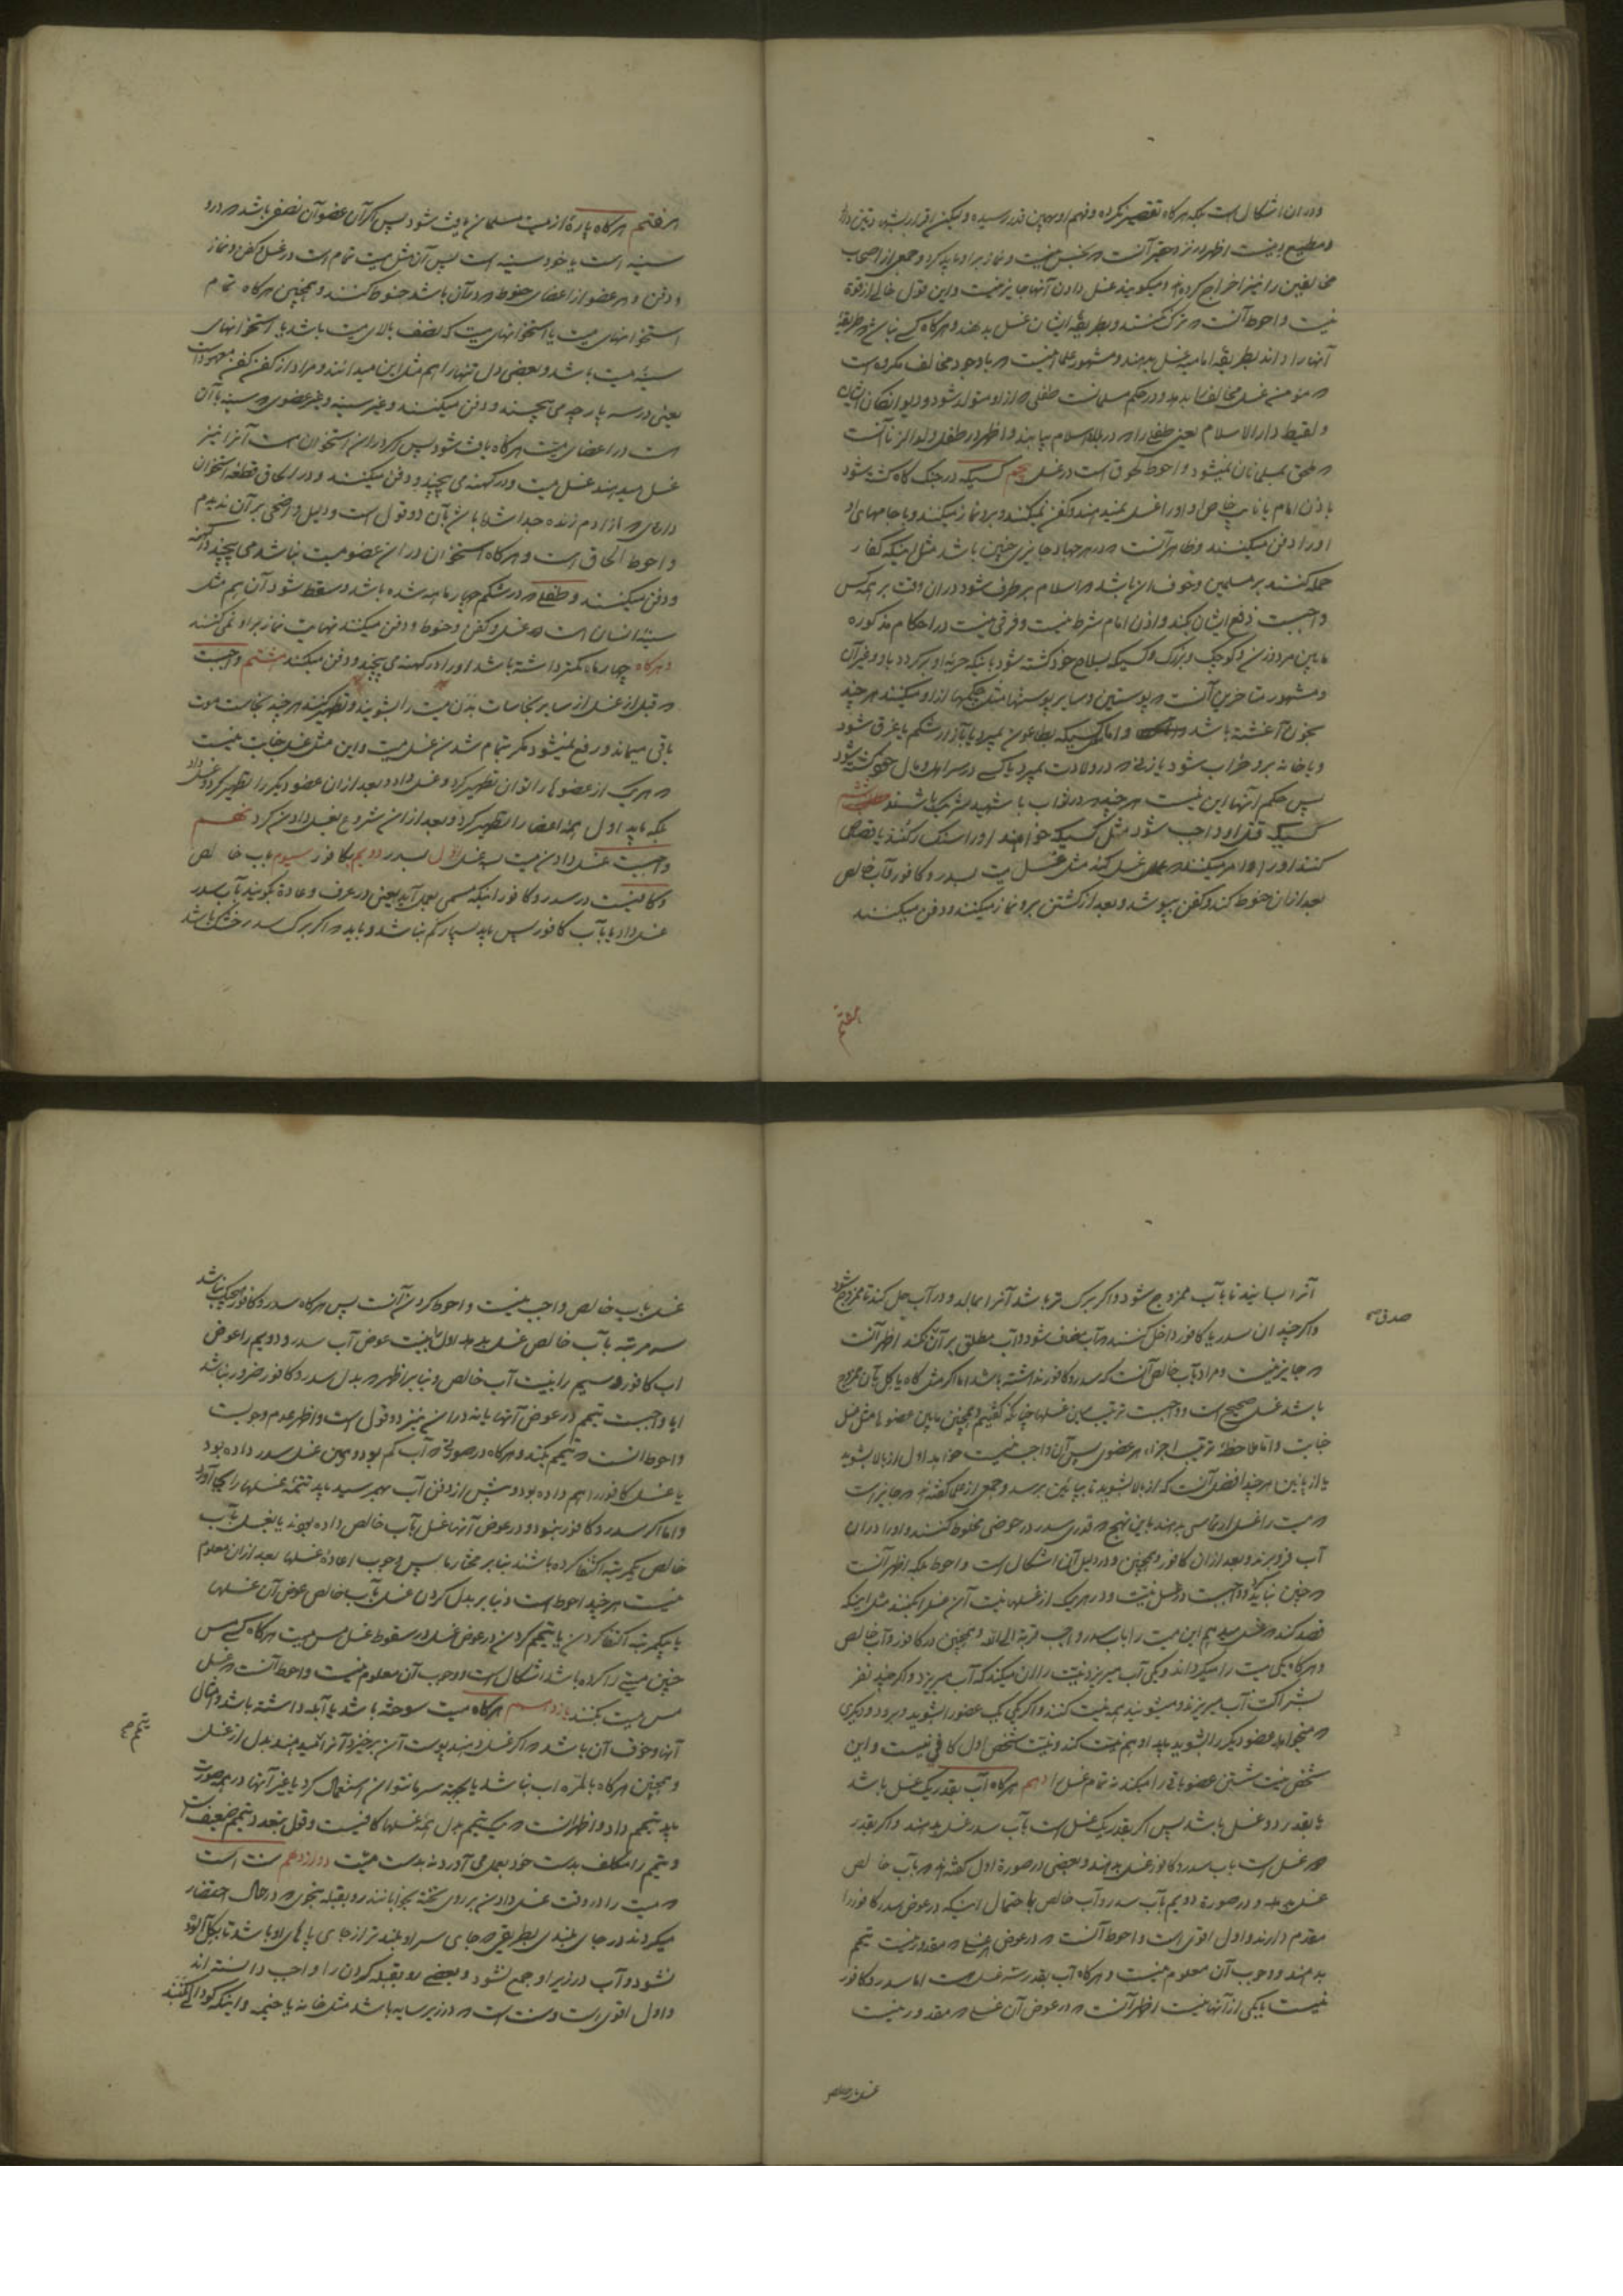 ودران اشکال است بلکه هرکاه تقصیر نکرده و فهم او بهمین قدر رسیده ولیکن اقرار
و مطیع دینست اظهر در نزد حقیر آنست که نجس نیست و نماز بر او باید کرد و جمعی از اصحاب
مخالفین را نیز اخراج کرده‌اند و میکویند غسل دادن آنها جایز نیست و این قول خالی از قوة
نیست و احوط آنست که ترک کنند و بطریقه ایشان غسل بدهند و هرکاه کسی نباشد که طریقه
آنها را داند بطریقه امامیه غسل بدهند و مشهور علما اینست که با وجود مخالف مکروه است
که مؤمن غسل مخالف را بدهد و در حکم مسلمانست طفلی که از او متولد شود و دیوانکان ایشان
و لقیط دار الاسلام یعنی طفلی را که در بلاد اسلام بیابند و اظهر در طفل ولد الزنا آنست
که ملحق بمسلمانان نمیشود و احوط لحوق است در غسل پنجم کسیکه در جنک کاه کشته شود
باذن امام یا نایب خاص او او را غسل نمیدهند و کفن نمیکنند و برو نماز میکنند و با جامهای او
او را دفن میکنند و ظاهر آنست که در هر جهاد جایزی چنین باشد مثل اینکه کفار
حمله کنند بر مسلمین و خوف این باشد که اسلام برطرف شود در ان وقت بر همه کس
واجبست دفع ایشان بکند و اذن امام شرط نیست و فرقی نیست در احکام مذکوره
مابین مرد و زن و کوچک و بزرک و کسیکه بسلاح خود کشته شود یا اینکه حربه او برکردد باو و غیر آن
و مشهور متاخرین آنست که پوستین و سایر پوستها مثل چکمها از او میکنند هر چند
بخون آغشته باشد و اما کسیکه بطاعون بمیرد یا بآزار شکم یا غرق شود
و یا خانه برو خراب شود یا زنی که در ولادت بمیرد یا کسی در سر اهل و مال خود کشته شود
پس حکم آنها این نیست هر چند در ثواب با شهید شریک باشند ششم
کسیکه قتل او واجب شود مثل کسیکه خواهند او را سنکسار کنند یا قصاص
کنند او را امر میکنند که غسل کند مثل غسل میت بسدر و کافور و آب خالص
بعد از ان حنوط کند و کفن بپوشد و بعد از کشتن برو نماز میکنند و دفن میکنند
هفتم
هفتم هرکاه پارۀ از میت مسلمان یافت شود پس اکر آن عضو آن نصفی باشد که درو
سینه است یا خود سینه است پس آن مثل میت تمام است در غسل و کفن و نماز
و دفن و هر عضو از اعضای حنوط که در آن باشد حنوط کنند و همچنین هرکاه تمام
استخوانهای میت یا استخوانهای میت که نصف بالای میت باشد یا استخوانهای
سینۀ میت باشد و بعضی دل تنها را هم مثل این میدانند و مراد از کفن کفن معهود است
یعنی در سه پارچه می پیچند و دفن میکنند و غیر سینه و غیر عضوی که سینه با آن
است در اعضای میت هرکاه یافت شود پس اکر در ان استخوان است آنرا نیز
غسل میدهند غسل میت و در کهنه می پیچند و دفن میکنند و در الحاق قطعه استخوان
داری که از آدم زنده جدا شده باشد بآن دو قول است و دلیل واضحی بر آن ندیدم
و احوط الحاق است و هرکاه استخوان در ان عضو میت نباشد می پیچند در کهنه
و دفن میکنند و طفلی که در شکم چهار ماهه شده باشد و سقط شود آن هم مثل
سینۀ انسان است که غسل و کفن و حنوط و دفن میکنند نهایت نماز بر او نمی کنند
و هرکاه چهار ماه کمتر داشته باشد او را در کهنه می پیچند و دفن میکنند هشتم واجبست
که قبل از غسل از سایر نجاسات بدن میت را بشویند و تطهیر کنند هر چند نجاست موت
باقی میماند و رفع نمیشود مکر بتمام شدن غسل میت و این مثل غسل جنابت نیست
که هریک از عضوها را توان تطهیر کرد و غسل داد و بعد از ان عضو دیکر را تطهیر کرد و غسل داد
بلکه باید اول همۀ اعضا را تطهیر کرد و بعد از ان شروع بغسل دادن کرد نهم
واجبست غسل دادن میت سه غسل اول بسدر دویم بکافور سیم بآب خالص
و کافیست در سدر و کافور اینکه مسمی بعمل آید یعنی در عرف و عادة بکویند بآب سدر
غسل داد یا بآب کافور پس باید بسیار کم نباشد و باید که اکر برک سدر خشک باشد
آنرا بسایند تا بآب ممزوج شود و اکر برک تر باشد آنرا بمالد و در آب حل کند تا ممزوج شود
و اکر چندان سدر یا کافور داخل کنند که آب مضاف شود و آب مطلق بر آن نکند اظهر آنست
صدق
که جایز نیست و مراد بآب خالص آنست که سدر و کافور نداشته باشد اما اکر مثل کاه یا کل بآن ممزوج
باشد غسل صحیح است و واجبست ترتیب مابین غسلها چنانکه کفتیم و همچنین مابین عضوها مثل غسل
جنابت و اما ملاحظۀ ترتیب اجزاء هر عضوی پس آن واجب نیست خواه اول از بالا بشوید
یا از پائین هر چند افضل آنست که از بالا بشوید تا بپائین برسد و جمعی از علما کفته‌اند که جایز است
که میت را غسل ارتماسی بدهند باین نهج که قدری سدر در حوضی مخلوط کنند و او را در ان
آب فرو برند و بعد از ان کافور و همچنین و در دلیل آن اشکال است و احوط بلکه اظهر آنست
که چنین نباید کرد و واجبست در غسل نیت و در هریک از غسلها نیت آن غسل را بکنند مثل اینکه
قصد کند که غسل میدهم این میت را بآب سدر واجب قربة الی الله و همچنین در کافور و آب خالص
و هرکاه یکی میت را میکرداند و یکی آب میریزد نیت را ان میکند که آب میریزد و اکر چند نفر
بشراکت آب میریزند و میشویند همه نیت کنند و اکر یکی یک عضو را بشوید و برود و دیکری
که میخواهد عضو دیکر را بشوید باید او هم نیت کند و نیت شخص اول کافی نیست و این
شخص نیت شستن عضو باقی را میکند نه تمام غسل را دهم هرکاه آب بقدر یک غسل باشد
یا بقدر دو غسل باشد پس اکر بقدر یک غسل است بآب سدر غسل بدهند و اکر بقدر
دو غسل است بآب سدر و کافور غسل بدهند و بعضی در صورة اول کفته‌اند که بآب خالص
غسل بدهد و در صورة دویم بآب سدر و آب خالص با احتمال اینکه در عوض سدر کافور را
مقدم دارند و اول اقوی است و احوط آنست که در عوض هر غسلی که مقدور نیست تیمم
بدهند و وجوب آن معلوم نیست و هرکاه آب بقدر سه غسل هست اما سدر و کافور
نیست یا یکی از آنها نیست اظهر آنست که در عوض آن غسلی که مقدور نیست
غسل بآب خالص
غسل بآب خالص واجب نیست و احوط کردن آنست پس هرکاه سدر و کافور هیچیک نباشد
سه مرتبه بآب خالص غسل بدهد اول را بنیت عوض آب سدر و دویم را عوض
آب کافور و سیم را بنیت آب خالص و بنا بر اظهر که بدل سدر و کافور ضرور نباشد
آیا واجبست تیمم در عوض آنها یا نه در این نیز دو قول است و اظهر عدم وجوبست
و احوط آنست که تیمم بکنند و هرکاه در صورتی که آب کم بود و همین غسل سدر داده بود
یا غسل کافور را هم داده بود و پیش از دفن آب بهم رسید باید تتمۀ غسلها را بجا آورد
و اما اکر سدر و کافور نبود و در عوض آنها غسل بآب خالص داده بودند یا بغسل بآب
خالص یکمرتبه اکتفا کرده باشند بنا بر مختار ما پس وجوب اعادۀ غسلها بعد از ان معلوم
نیست هر چند احوط است و بنا بر بدل کردن غسل بآب خالص عوض آن غسلها
یا بیکمرتبه اکتفا کردن یا تیمم کردن در عوض غسل در سقوط غسل مس میت هرکاه کسی مس
چنین میتی را کرده باشد اشکال است و وجوب آن معلوم نیست و احوط آنست که غسل
مس میت بکنند یازدهم هرکاه میت سوخته باشد یا آبله داشته باشد و امثال
آنها و خوف آن باشد که اکر غسل دهند پوست آن برخیزد آنرا تیمم دهند بدل از غسل
تیمم
و همچنین هرکاه بالمرّه آب نباشد یا بجهة سرما نتوان استعمال کرد یا غیر آنها در همه صورت
باید تیمم داد و اظهر آنست که یک تیمم بدل همۀ غسلها کافیست و قول بتعدد تیمم ضعیف است
و تیمم را مکلف بدست خود بعمل می آورد نه بدست میت دوازدهم سنت است
که میت را در وقت غسل دادن بر روی تخته بخوابانند رو بقبله بنحوی که در حال احتضار
میکردند در جای بلندی بطریقی که جای سر او بلند تر از جای پاهای او باشد تا بکل آلوده
نشود و آب در زیر او جمع نشود و بعضی رو بقبله کردن را واجب دانسته‌اند
و اول اقوی است و سنت است که در زیر سایه باشد مثل خانه یا خیمه و اینکه کودالی بکنند